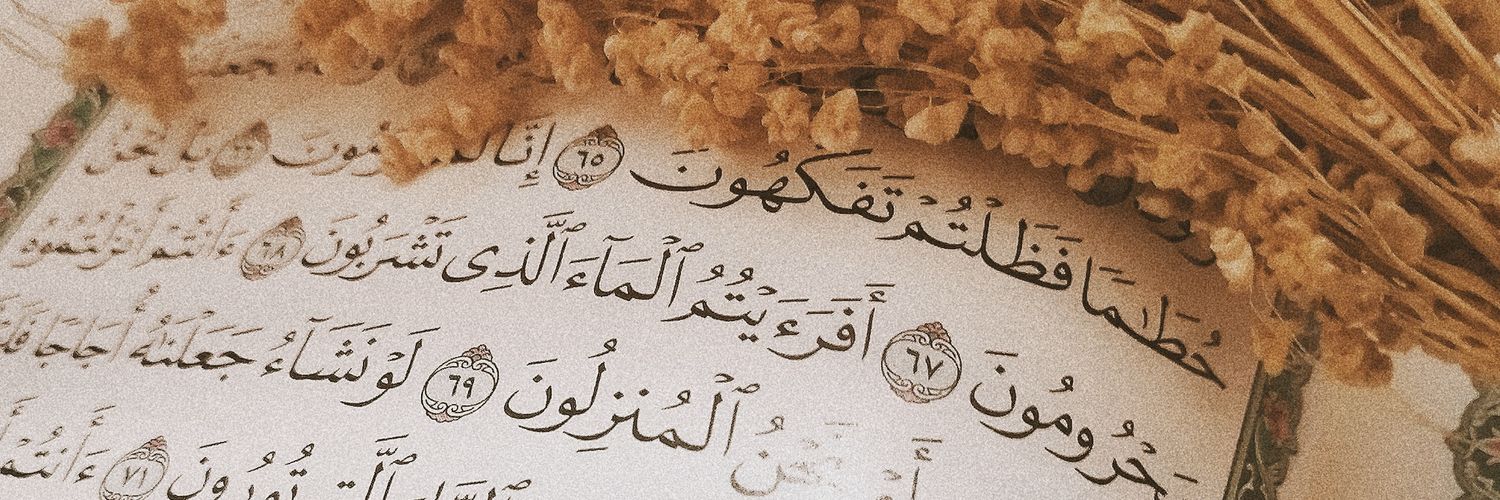 حُطَـٰمًا فَظَلْتُمْ تَفَكَّهُونَ ٦٥ إِنَّا بَلْ نَحْنُ
مَحْرُومُونَ ٦٧ أَفَرَءَيْتُمُ ٱلْمَآءَ ٱلَّذِى تَشْرَبُونَ ٦٨ ءَأَنتُمْ أَنزَلْتُمُوهُ
نَحْنُ ٱلْمُنزِلُونَ ٦٩ لَوْ نَشَآءُ جَعَلْنَـٰهُ أُجَاجًا
ٱلَّتِى تُورُونَ ٧١ ءَأَنتُمْ